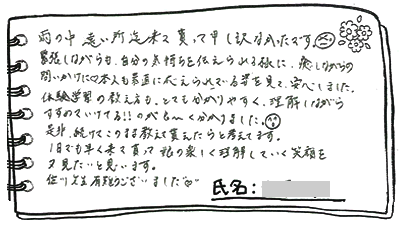 雨の中遠い所迄来て貰って申し訳なかったです。
緊張しながらも、自分の気持ちを伝えられる様に、癒しながらの
問いかけに本人も素直に応えられている姿を見て、安心しました。
体験学習の教え方も、とても分かりやすく、理解しながら
すすめていってる!!のがよ〜く分かりました。
是非、続けてこのまま教えて貰えたらと考えてます。
1日でも早く来て貰って娘の楽しく理解していく笑顔を
又見たいと思います。
先生有難うございました
氏名: